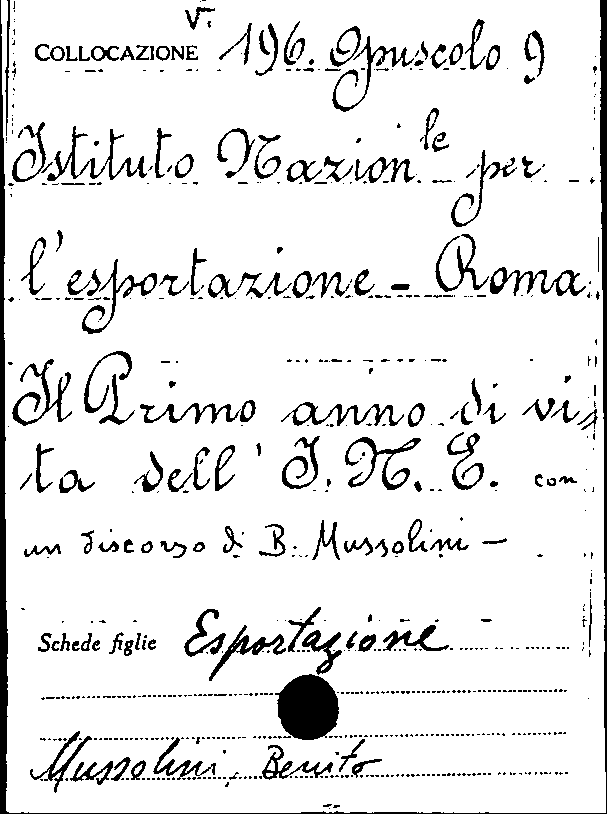 V.
COLLOCAZIONE 196. Opuscolo 9
Istituto Nazionle per
l'esportazione - Roma
Il Primo anno di vi=
ta dell' I. N. E. con
un discorso di B. Mussolini -
Schede figlie Esportazione
Mussolini, Benito